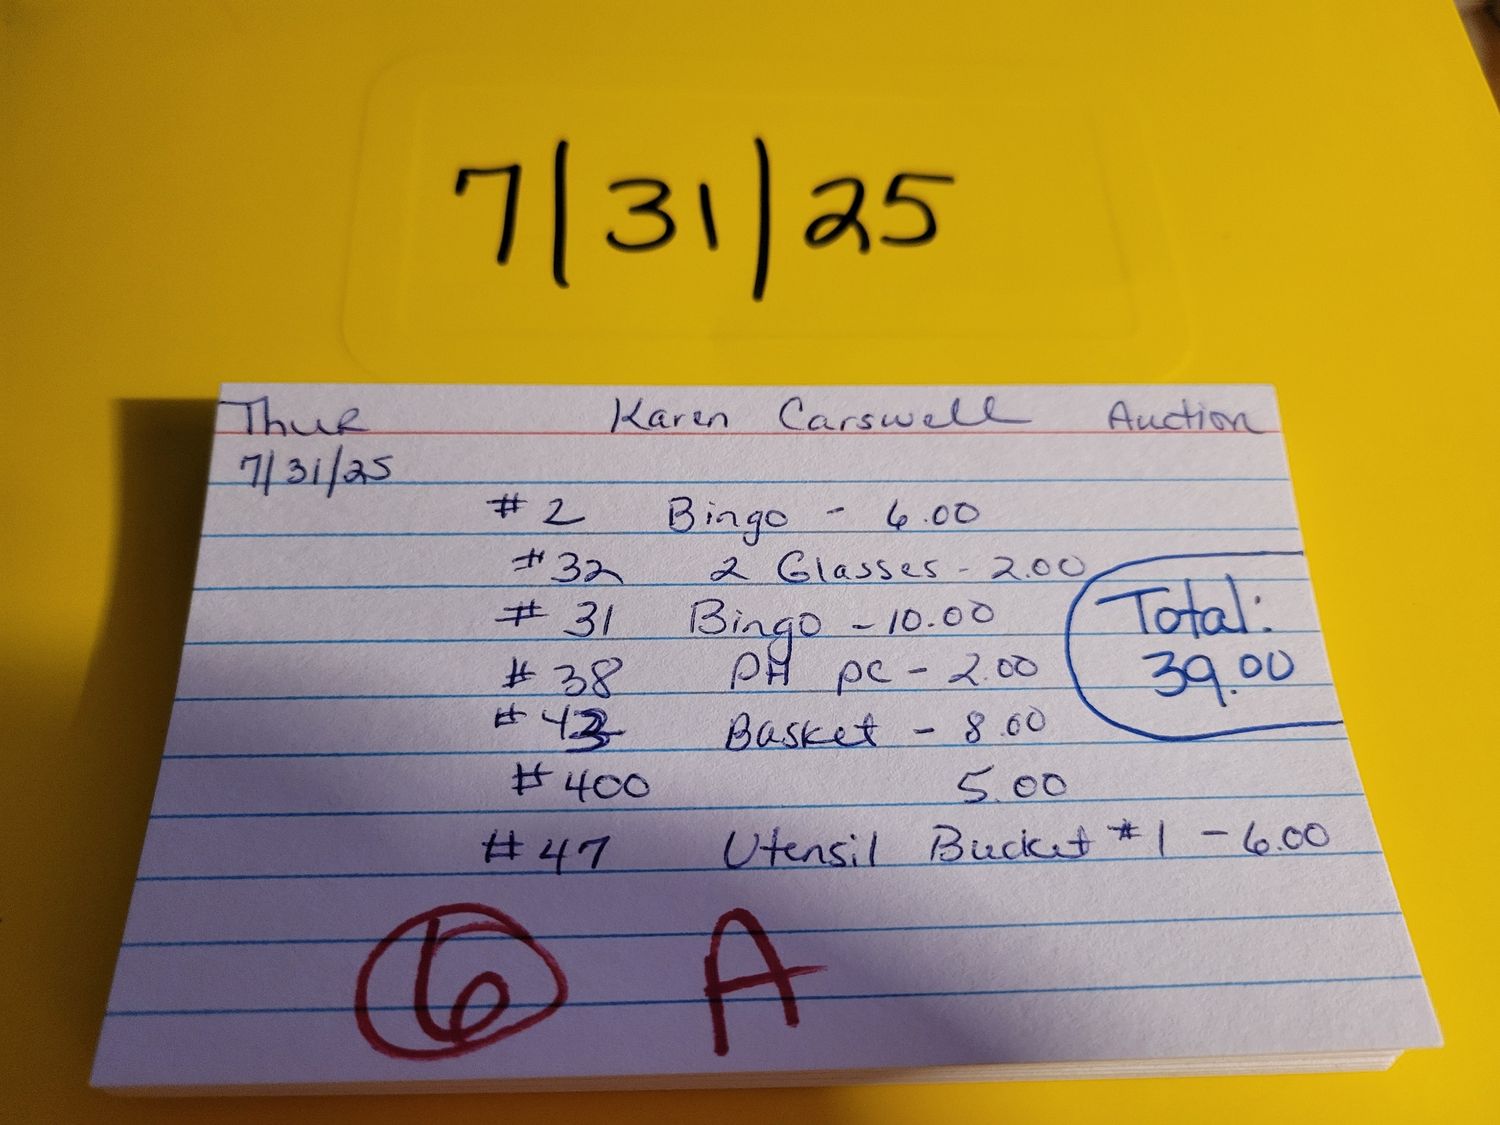 7/31/25
Thur Karen Carswell Auction
7/31/25
#2 Bingo - 6.00
#32 2 Glasses - 2.00
#31 Bingo - 10.00
#38 PH pc - 2.00
#43 Basket - 8.00
#400 5.00
#47 Utensil Bucket #1 - 6.00
Total:
39.00
6 A